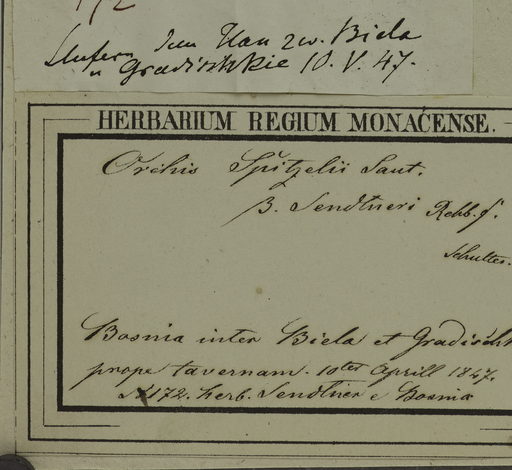 172
Stufern Dem Han zw. Biela
u Gradischkie 10. V. 47.
HERBARIUM REGIUM MONACENSE.
Orchis Spitzelii Saut.
β. Sendtneri Rchb. f.
Schultes.
Bosnia inter Biela et Gradisch
prope tavernam. 10ter Aprill 1847.
N 172. herb. Sendtner e Bosnia